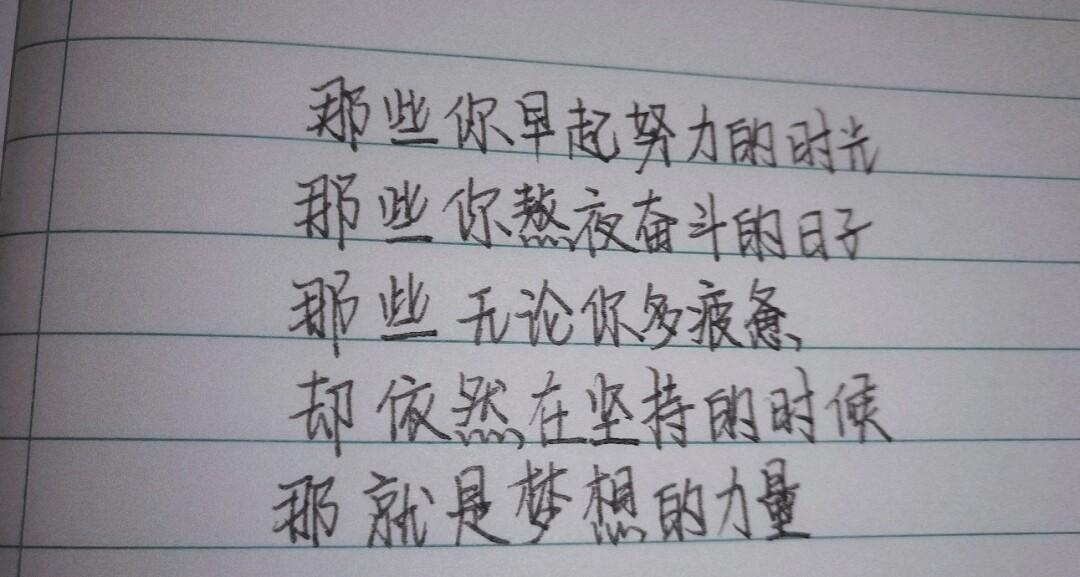 那些你早起努力的时光
那些你熬夜奋斗的日子
那些无论你多疲惫
却依然在坚持的时候
那就是梦想的力量